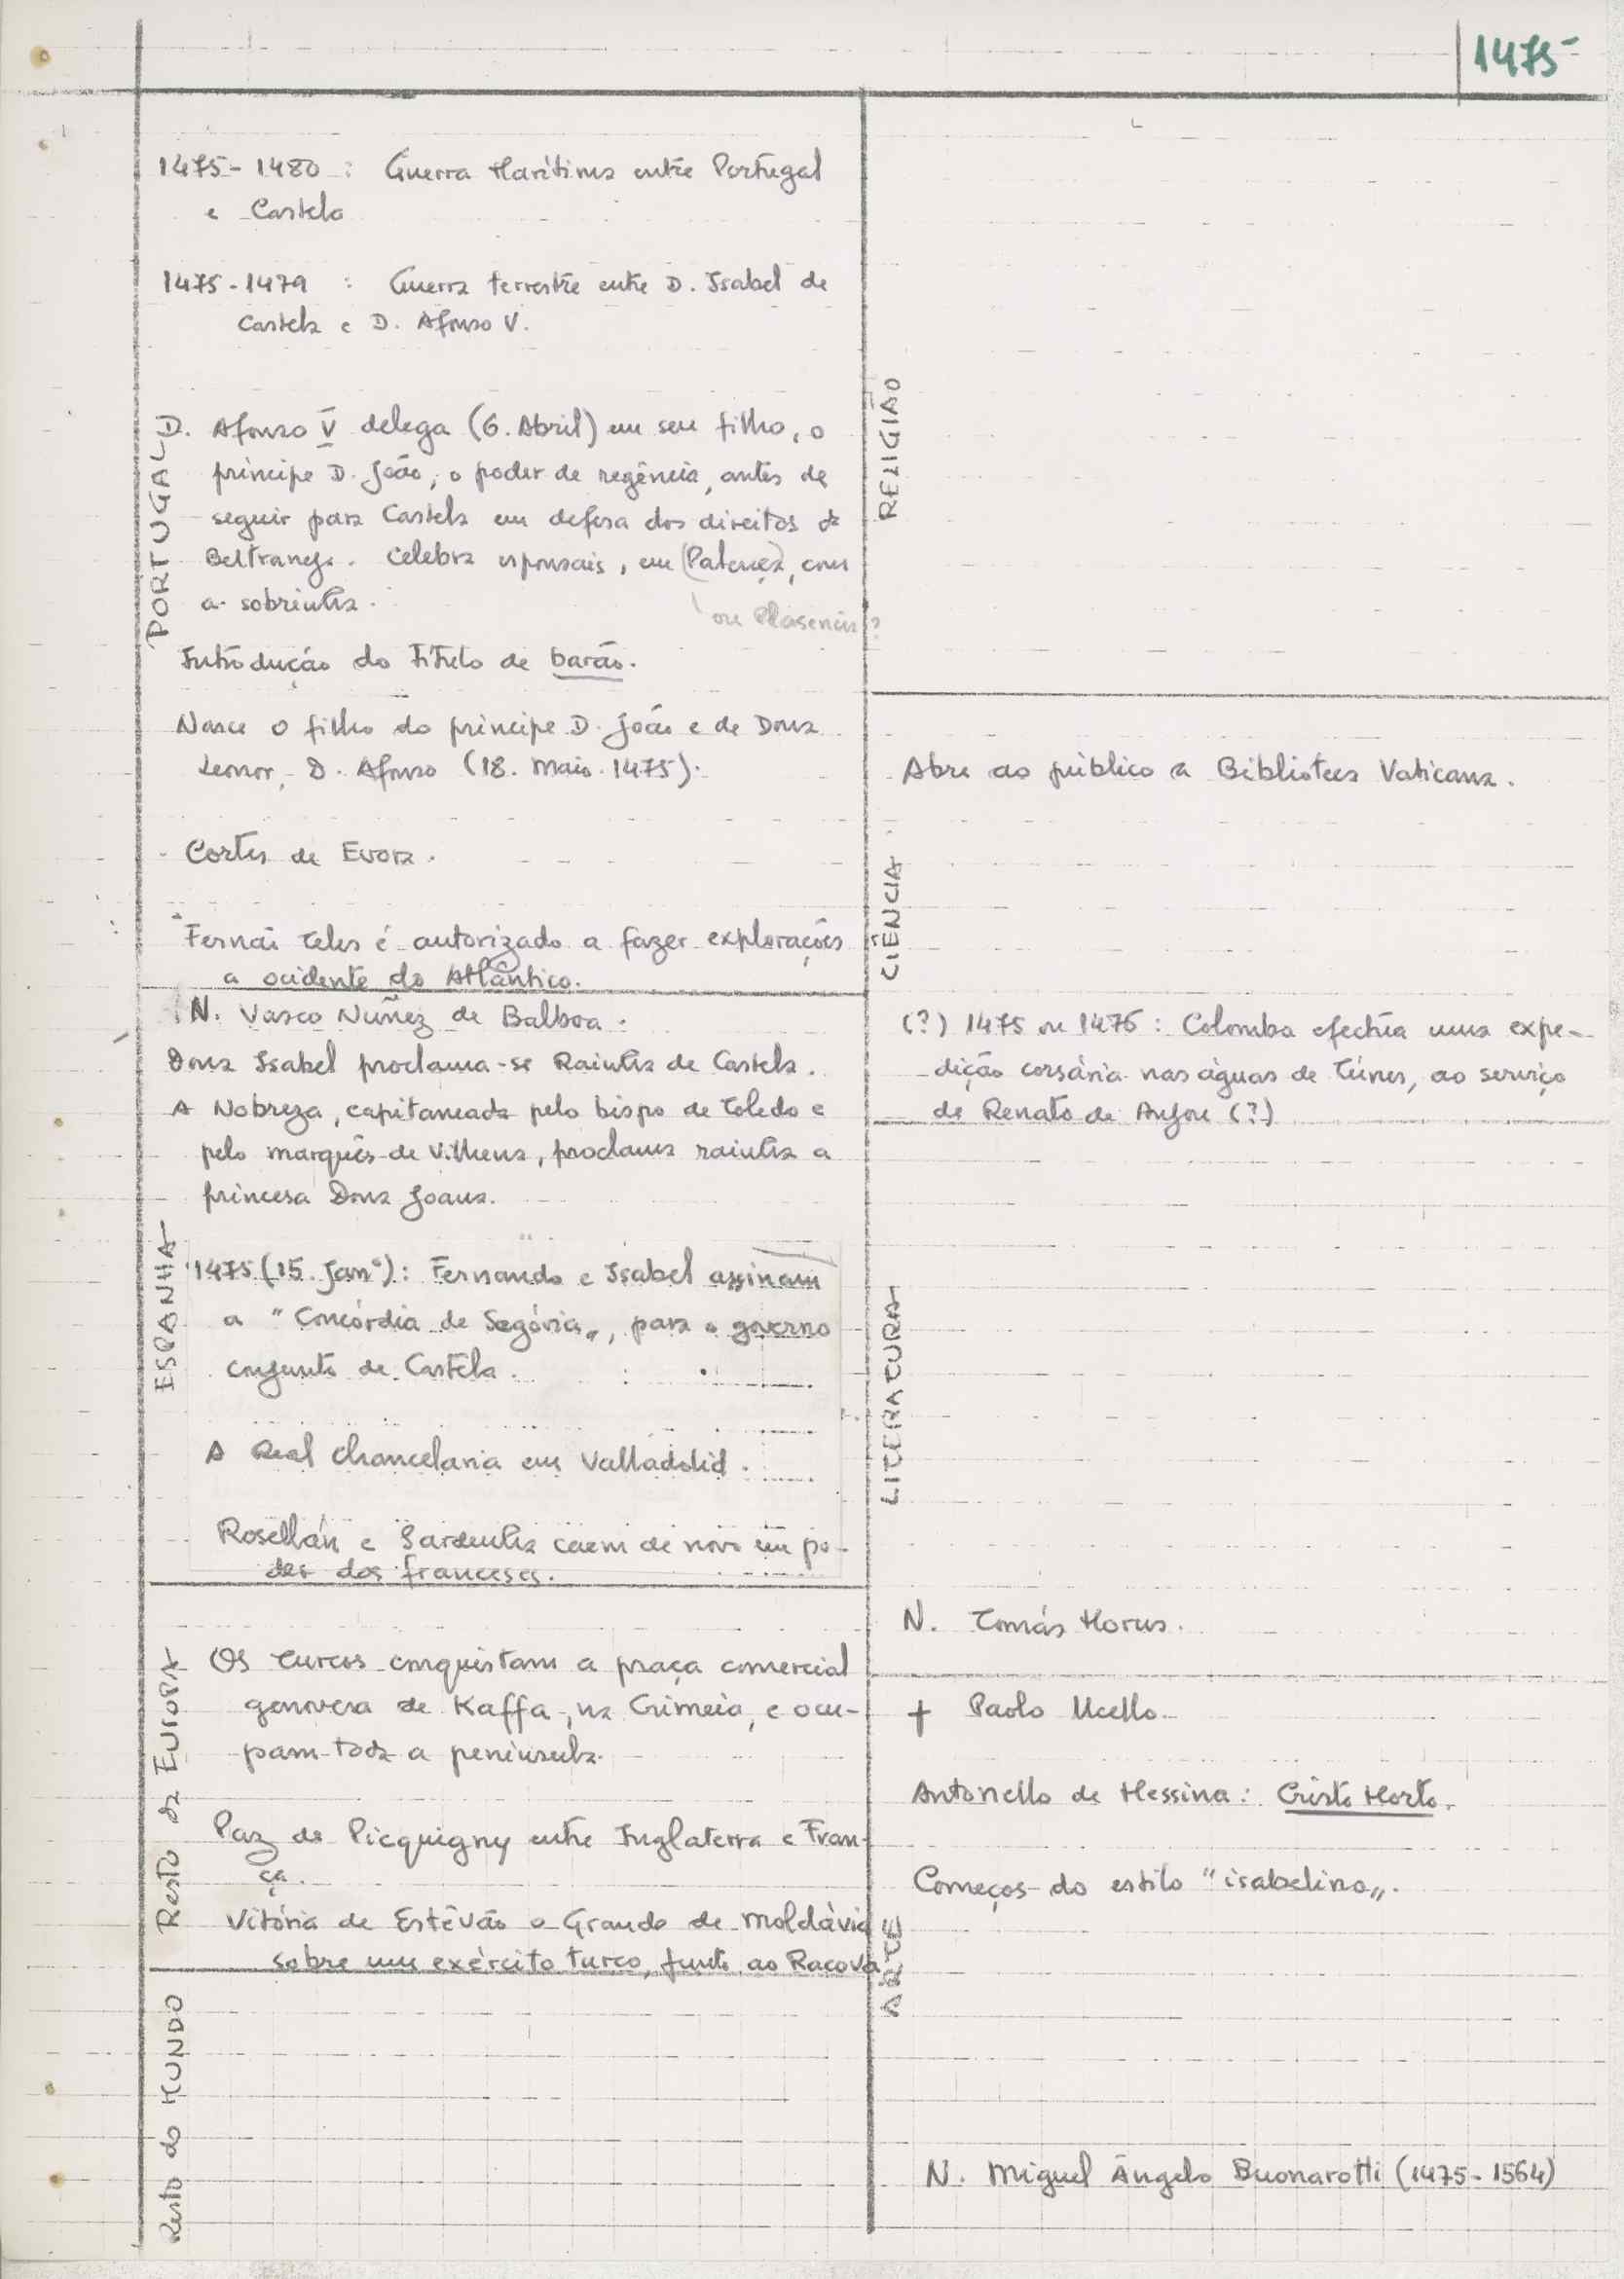 1475
PORTUGAL
1475-1480 : Guerra Marítima entre Portugal
e Castela
1475-1479 : Guerra terrestre entre D. Isabel de
Castela e D. Afonso V.
D. Afonso V delega (6. Abril) em seu filho, o
príncipe D. João, o poder de regência, antes de
seguir para Castela em defesa dos direitos da
Beltraneja. Celebra esponsais, em (Palença), com
a sobrinha.
ou Plasencia?
Introdução do Título de barão.
Nasce o filho do príncipe D. João e de Dona
Leonor, D. Afonso (18. Maio. 1475).
Cortes de Evora.
Fernão Teles é autorizado a fazer explorações
a ocidente do Atlântico.
ESPANHA
N. Vasco Nuñez de Balboa.
Dona Isabel proclama-se Rainha de Castela.
A Nobreza, capitaneada pelo bispo de Toledo e
pelo marquês de Vilhena, proclama rainha a
princesa Dona Joana.
1475 (15. Janº): Fernando e Isabel assinam
a "Concórdia de Segóvia„, para o governo
conjunto de Castela.
A Real Chancelaria em Valladolid.
Rosellán e Sardenha caem de novo em po-
der dos franceses.
Resto da EUROPA
Os Turcos conquistam a praça comercial
genovesa de Kaffa, na Crimeia, e ocu-
pam toda a península.
Paz de Picquigny entre Inglaterra e Fran-
ça.
Vitória de Estêvão o Grande de Moldávia
sobre um exército turco, junto ao Racova
Resto do MUNDO
RELIGIÃO
CIÊNCIA
Abre ao público a Biblioteca Vaticana.
(?) 1475 ou 1476: Colombo efectúa uma expe-
dição corsária nas águas de Túnes, ao serviço
de Renato de Anjou (?)
LITERATURA
N. Tomás Morus.
ARTE
† Paolo Ucello.
Antonello de Messina: Cristo Morto.
Começos do estilo "isabelino„.
N. Miguel Ângelo Buonarotti (1475-1564)